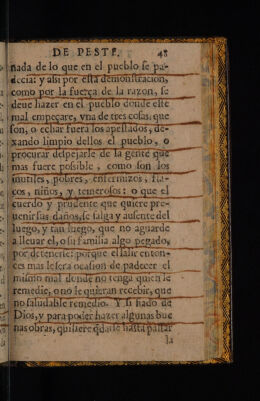 DE PESTE. 48
nada de lo que en el pueblo se pa-
decia: y assi por esta demonstracion,
como por la fuerça de la razon, se
deue hazer en el pueblo donde este
mal empeçare, vna de tres cosas, que
son, o echar fuera los apestados, de-
xando limpio dellos el pueblo, o
procurar despejarle de la gente que
mas fuere possible, como son los
inutiles, pobres, enfermizos, fla-
cos, niños, y temerosos: o que el
cuerdo y prudente que quiere pre-
uenir sus daños, se salga y ausente del
luego, y tan luego, que no aguarde
a lleuar el, o su familia algo pegado,
por detenerse: porque el salir enton-
ces mas le sera ocasion de padecer el
mismo mal donde no tenga quien le
remedie, o no le quieran recebir, que
no saludable remedio. Y si fiado de
Dios, y para poder hazer algunas bue
nas obras, quisiere q̃darse hasta passar
la